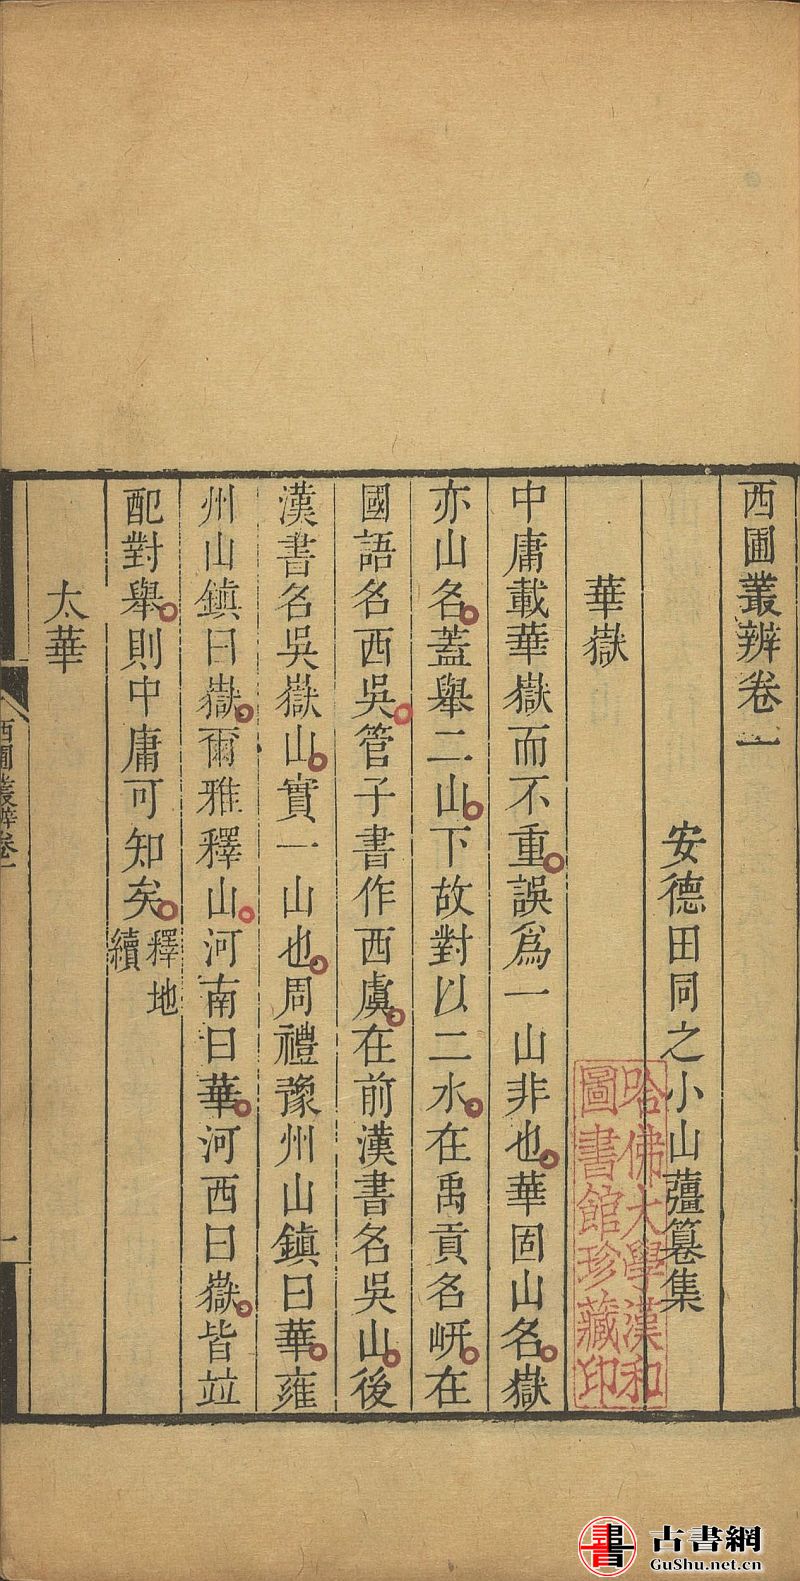 西圃叢辨卷一
安德田同之小山薑纂集
華嶽
中庸載華嶽而不重誤爲一山非也華固山名嶽
亦山名蓋舉二山下故對以二水在禹貢名岍在
國語名西吳管子書作西虞在前漢書名吳山後
漢書名吳嶽山實一山也周禮豫州山鎮曰華雍
州山鎮曰嶽爾雅釋山河南曰華河西曰嶽皆竝
配對舉則中庸可知矣釋地
續
太華
西圃叢辨卷一
一
哈佛大學漢和
圖書館珍藏印
古書網
GuShu.net.cn